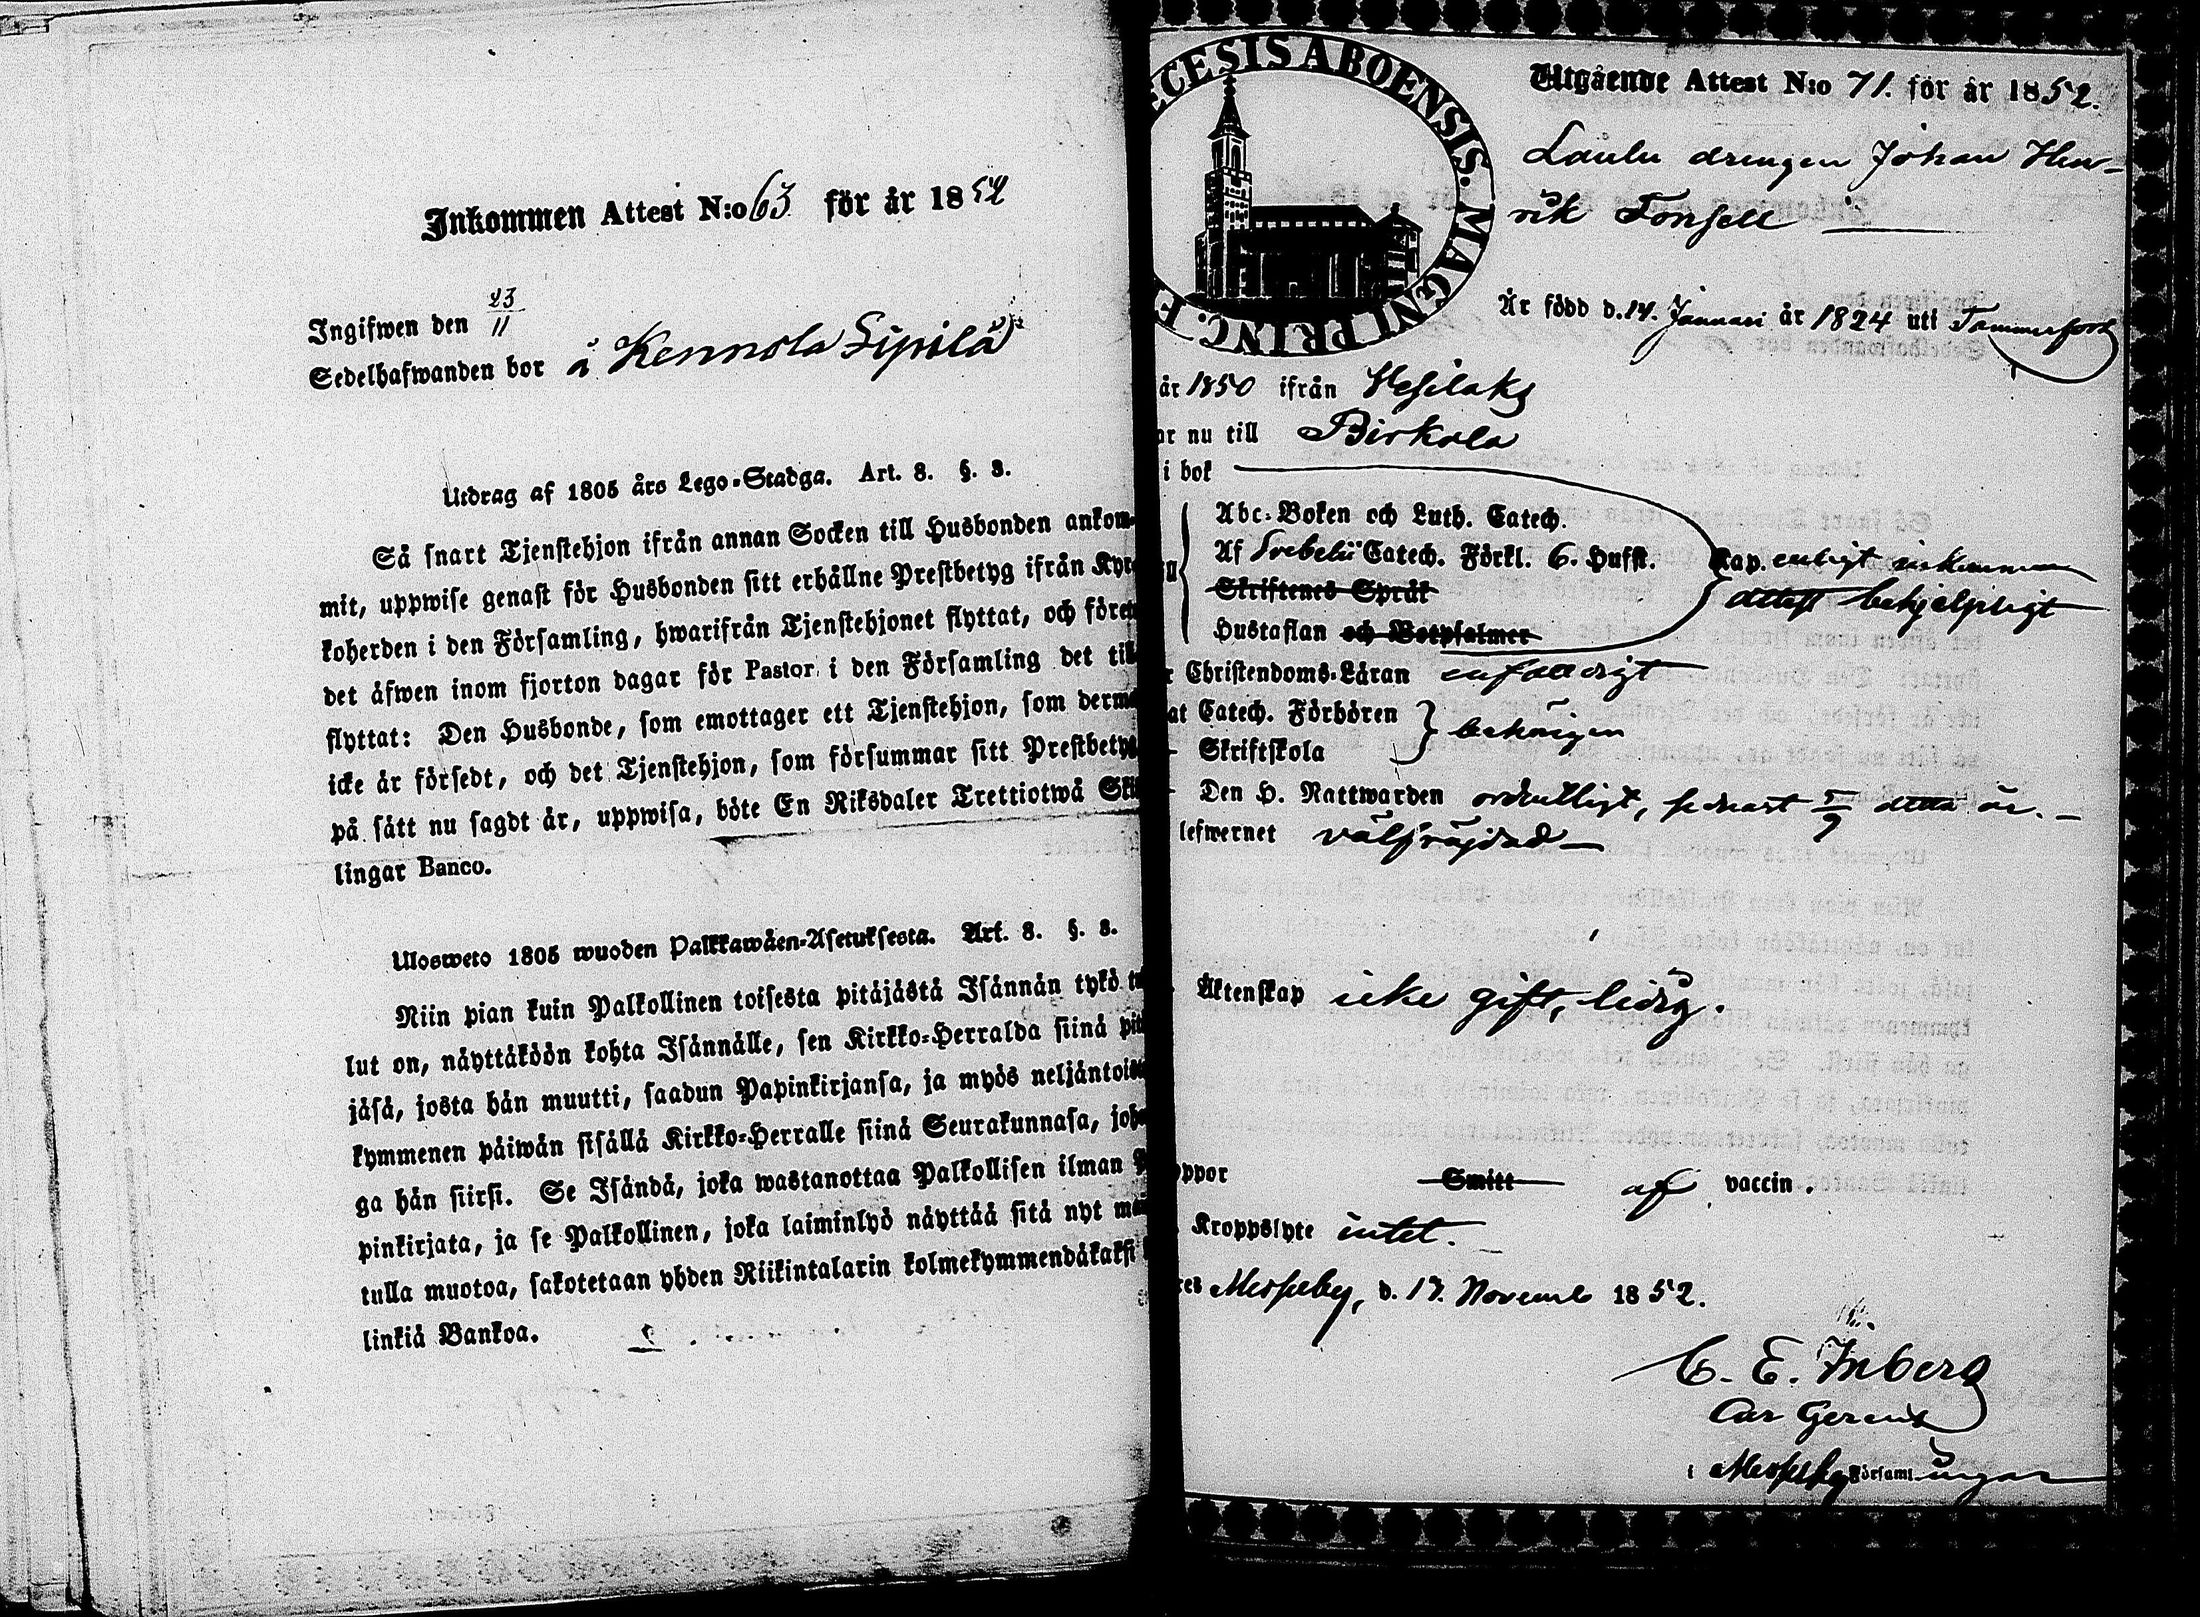 Inkommen Attest N:o 63 för år 1852
Ingifwen den 23/11
Sedelhafwanden bor å Kennola Sipilä
Utdrag af 1805 års Lego-Stadga. Art. 8. §. 3.
Så snart Tjenstehjon ifrån annan Socken till Husbonden ankom-
mit, uppwise genast för Husbonden sitt erhållne Prestbetyg ifrån Kyr-
koherden i den Församling, hwarifrån Tjenstehjonet flyttat, och förete
det äfwen inom fjorton dagar för Pastor i den Församling det till
flyttat: Den Husbonde, som emottager ett Tjenstehjon, som dermed
icke är försedt, och det Tjenstehjon, som försummar sitt Prestbetyg
på sätt nu sagdt är, uppwisa, böte En Riksdaler Trettiotwå Skil-
lingar Banco.
Ulosweto 1805 wuoden Palkkawäen-Asetuksesta. Art. 8. §. 3.
Niin pian kuin Palkollinen toisesta pitäjästä Isännän tykö tu
lut on, näyttäköön kohta Isännälle, sen Kirkko-Herralda siinä pit
jäsä, josta hän muutti, saadun Papinkirjansa, ja myös neljäntoist
kymmenen päiwän sisällä Kirkko-Herralle siinä Seurakunnasa, joho
ga hän siirsi. Se Isändä, joka wastanottaa Palkollisen ilman P
pinkirjata, ja se Palkollinen, joka laiminlyö näyttää sitä nyt ma
tulla muotoa, sakotetaan yhden Riikintalarin kolmekymmendäkaksi
linkiä Bankoa.
ECESIS ABOENSIS. MAGNI PRINC. F
Utgående Attest N:o 71. för år 1852.
Laulu drengen Johan Hen-
rik Tonsell
Är född d. 14. Januari år 1824 uti Tammerfors
år 1850 ifrån Vesilaks
ar nu till Birkala
i bok
Abc-Boken och Luth. Catech.
Af Svebelii Catech. Förkl. 6. Hufst. Kap. enligt inkommen
Skriftenes Språk attest behjelpligt
Hustaflan och Botpsalmer
Christendoms-Läran enfaldigt
at Catech. Förhören
behörigen
Skriftskola
Den H. Nattwarden ordentligt, sednast 5/9 detta år.
lefwernet välfräjdad
Äktenskap icke gift, ledig.
oppor Smitt af vaccin.
Kroppslyte intet.
res Messuby, d. 17. Novemb 1852.
C. E. Inberg
Cur Gerens
i Messuby Församlingar